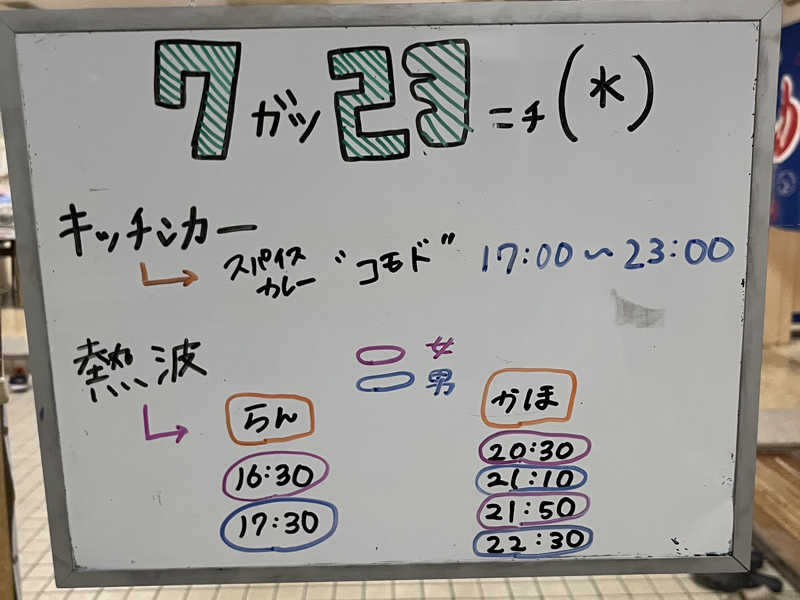 7ガツ23ニチ(*)
キッチンカー
スパイスカレー "コモド" 17:00~23:00
熱波
女
男
らん
16:30
17:30
かほ
20:30
21:10
21:50
22:30